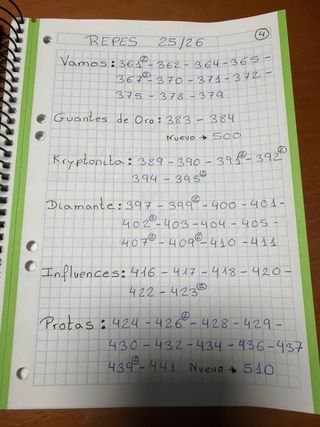 REPES 25/26 ④
Vamos: 361② - 362 - 364 - 365 -
367② - 370 - 371 - 372 -
375 - 378 - 379
Guantes de Oro: 383 - 384
Nuevo → 500
Kryptonita: 389 - 390 - 391② - 392②
394 - 395②
Diamante: 397 - 399② - 400 - 401 -
402② - 403 - 404 - 405 -
407② - 409② - 410 - 411
Influences: 416 - 417 - 418 - 420 -
422 - 423②
Protas: 424 - 426② - 428 - 429 -
430 - 432 - 434 - 436 - 437
439② - 441 Nuevo → 510